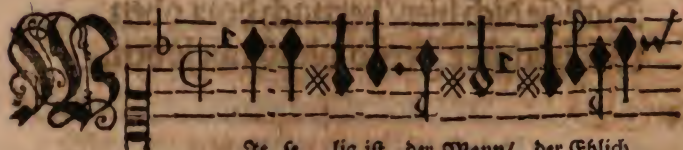 WJe ſe- lig iſt der Mann/ der Ehlich